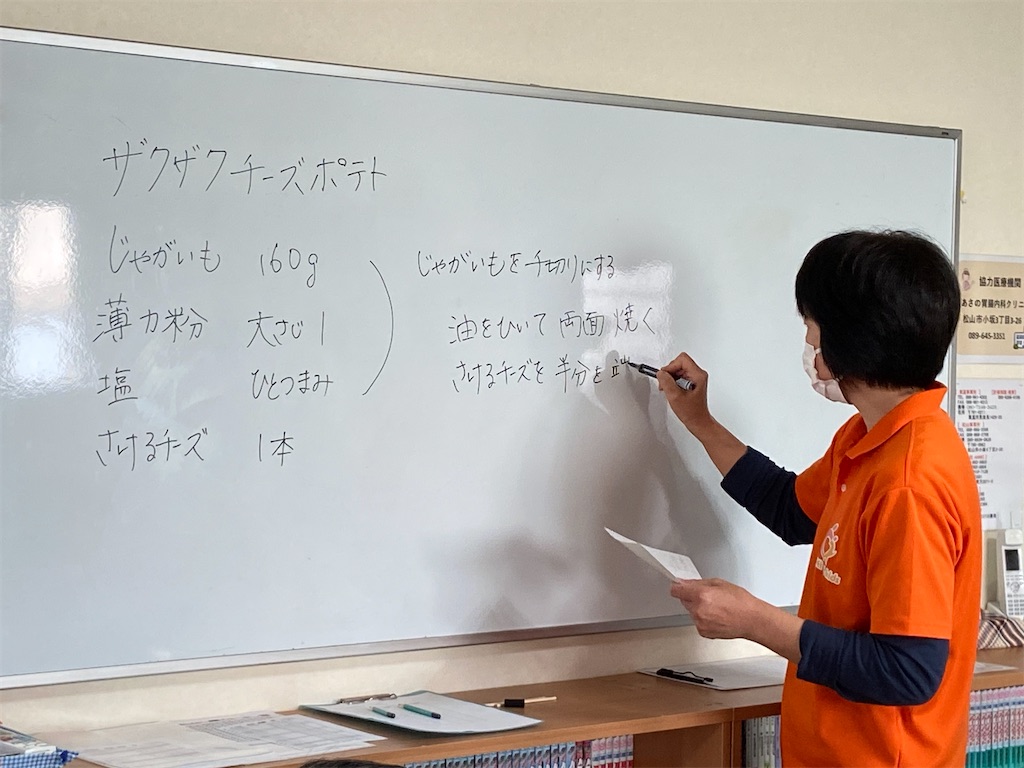 ザクザクチーズポテト
じゃがいも 160g
薄力粉 大さじ1
塩 ひとつまみ
さけるチーズ 1本
じゃがいもを千切りにする
油をひいて両面焼く
さけるチーズを半分を
協力医療機関
あさの胃腸内科クリニ
松山市小坂3丁目3-26
089-645-3351